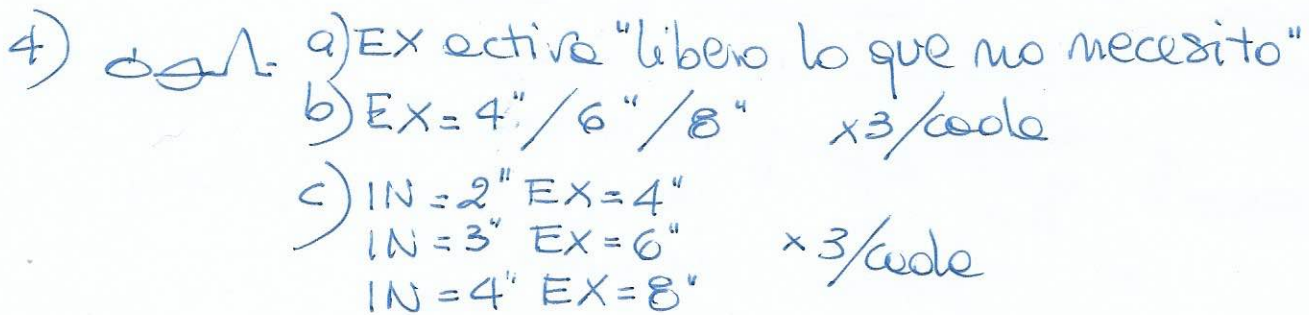 4) a) EX activa "libero lo que no necesito"
b) EX = 4" / 6" / 8" x3/cada
c) IN = 2" EX = 4"
IN = 3" EX = 6" x 3/cada
IN = 4" EX = 8"